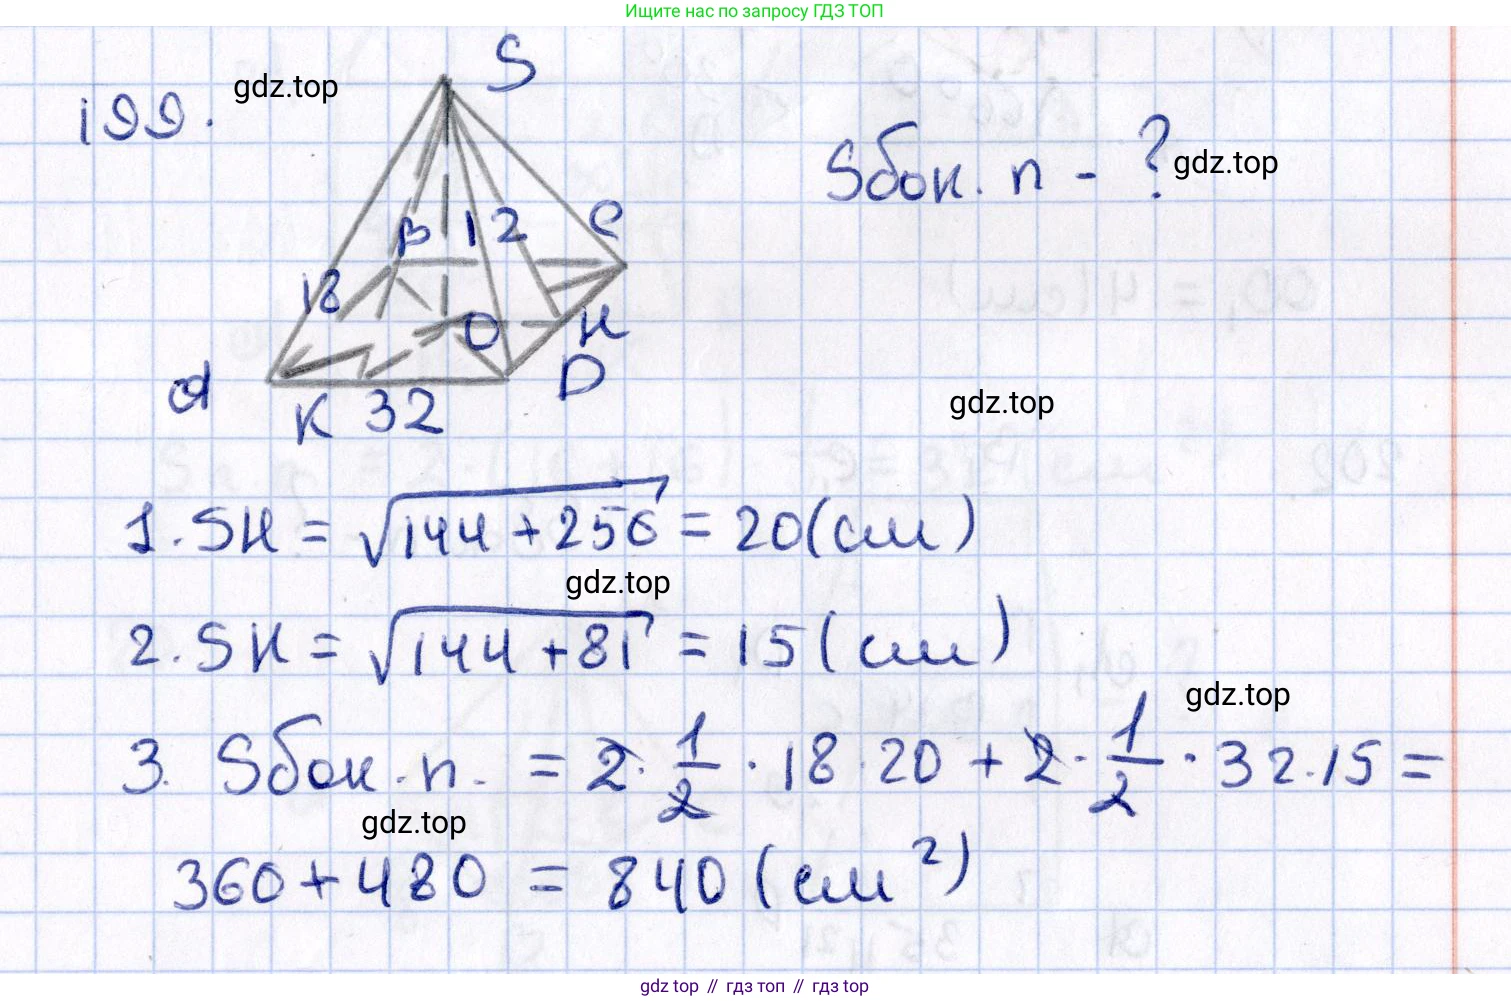 Ищите нас по запросу ГДЗ ТОП
199.
gdz.top
S
Sбок. п - ?
gdz.top
B 12 C
18
O H
A D
K 32
gdz.top
1. SH = √144 + 256 = 20 (см)
gdz.top
2. SK = √144 + 81 = 15 (см)
gdz.top
3. Sбок. п. = 2 · 1/2 · 18 · 20 + 2 · 1/2 · 32 · 15 =
gdz.top
360 + 480 = 840 (см²)
gdz.top // гдз топ // гдз top